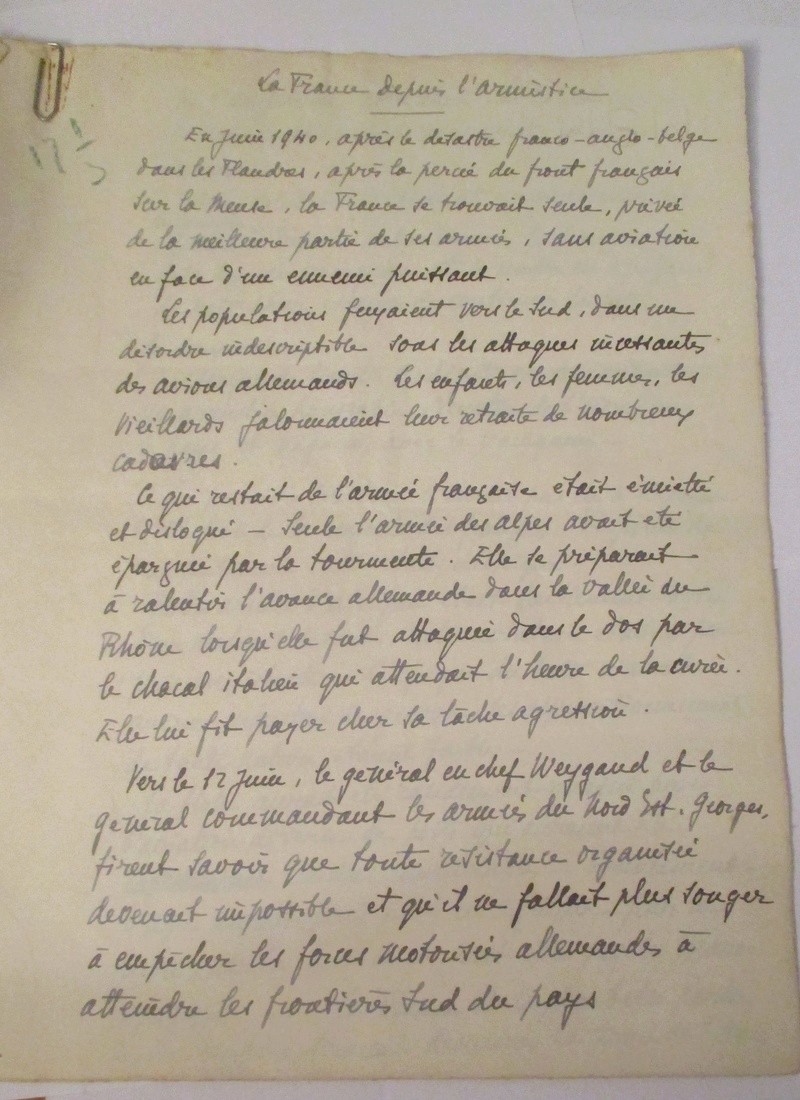 La France depuis l'armistice
En Juin 1940, après le désastre franco-anglo-belge
dans les Flandres, après la percée du front français
sur la Meuse, la France se trouvait seule, privée
de la meilleure partie de ses armées, sans aviation
en face d'un ennemi puissant.
Les populations fuyaient vers le Sud, dans un
désordre indescriptible sous les attaques incessantes
des avions allemands. Les enfants, les femmes, les
vieillards jalonnaient leur retraite de nombreux
cadavres.
Ce qui restait de l'armée française était émietté
et disloqué — Seule l'armée des alpes avait été
épargnée par la tourmente. Elle se préparait
à ralentir l'avance allemande dans la vallée du
Rhône lorsqu'elle fut attaquée dans le dos par
le chacal italien qui attendait l'heure de la curée.
Elle lui fit payer cher sa lâche agression.
Vers le 12 Juin, le général en chef Weygand et le
général commandant les armées du Nord Est, Georges,
firent savoir que toute résistance organisée
devenait impossible et qu'il ne fallait plus songer
à empêcher les forces motorisées allemandes à
atteindre les frontières Sud du pays